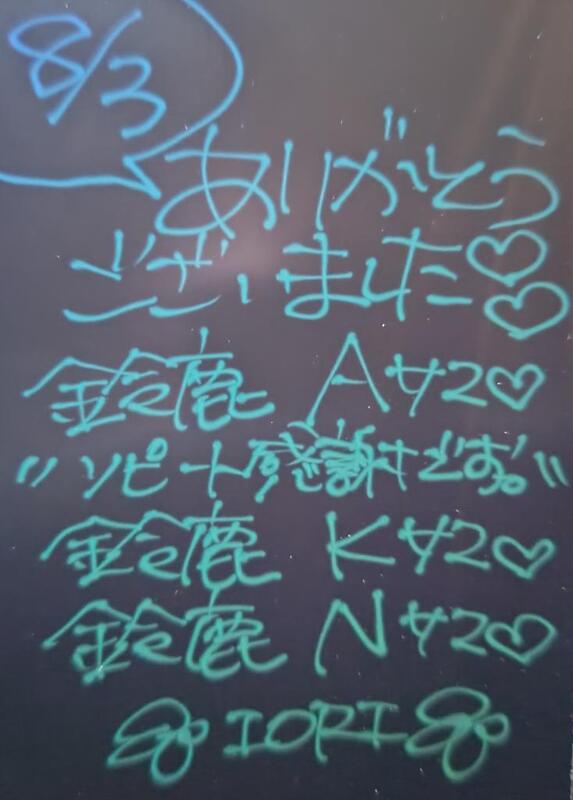 8/3
ありがとう
ございました♡♡
鈴鹿 Aサマ♡
"リピート感謝です。"
鈴鹿 Kサマ♡
鈴鹿 Nサマ♡
IORI